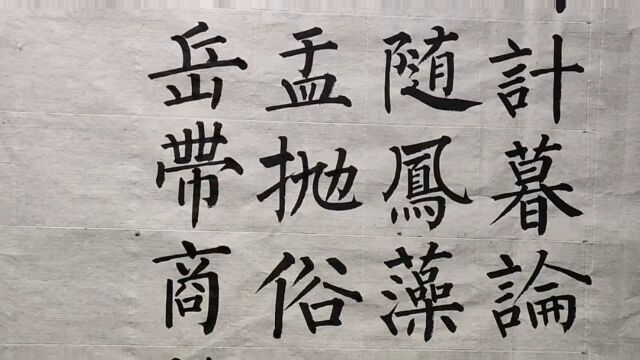 計暮論
随鳳藻
盂抛俗
岳帶商